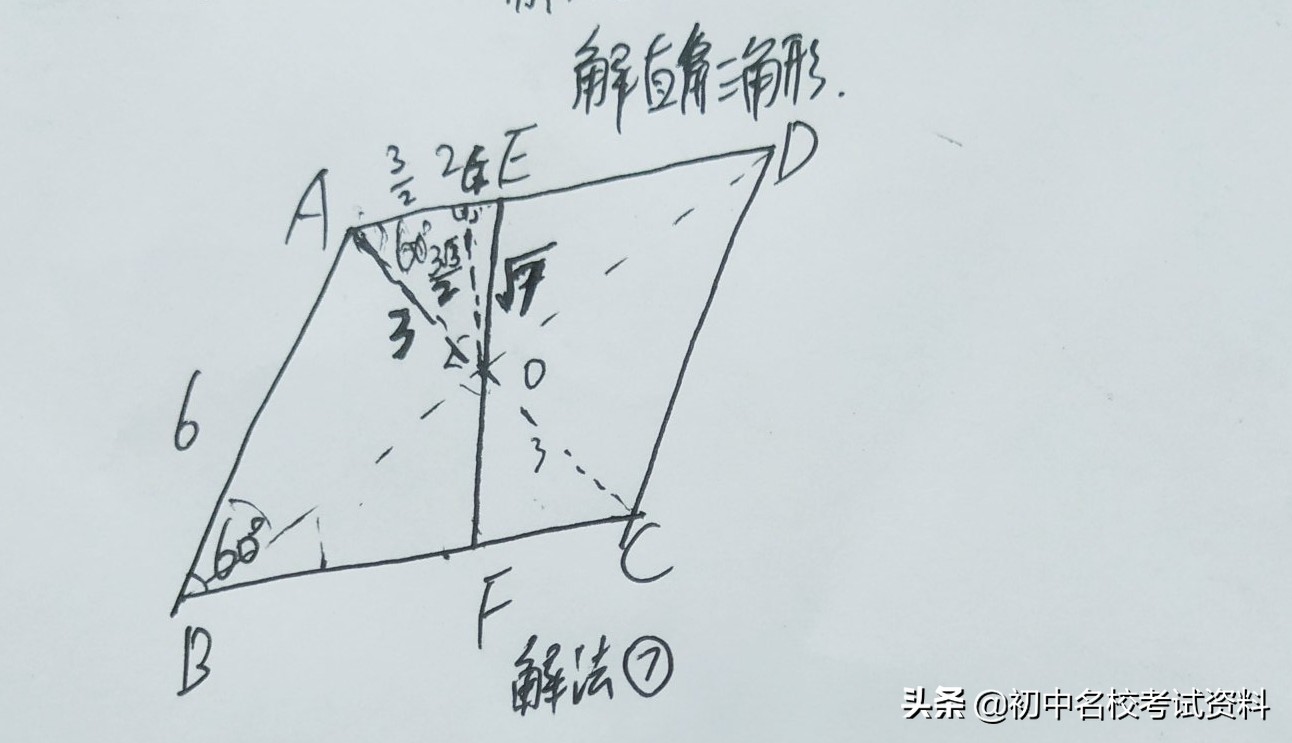 解直角三角形.
A
3/2
2
E
D
60°
3√3/2
√7
3
O
6
3
60°
B
F
C
解法⑦
头条 @初中名校考试资料